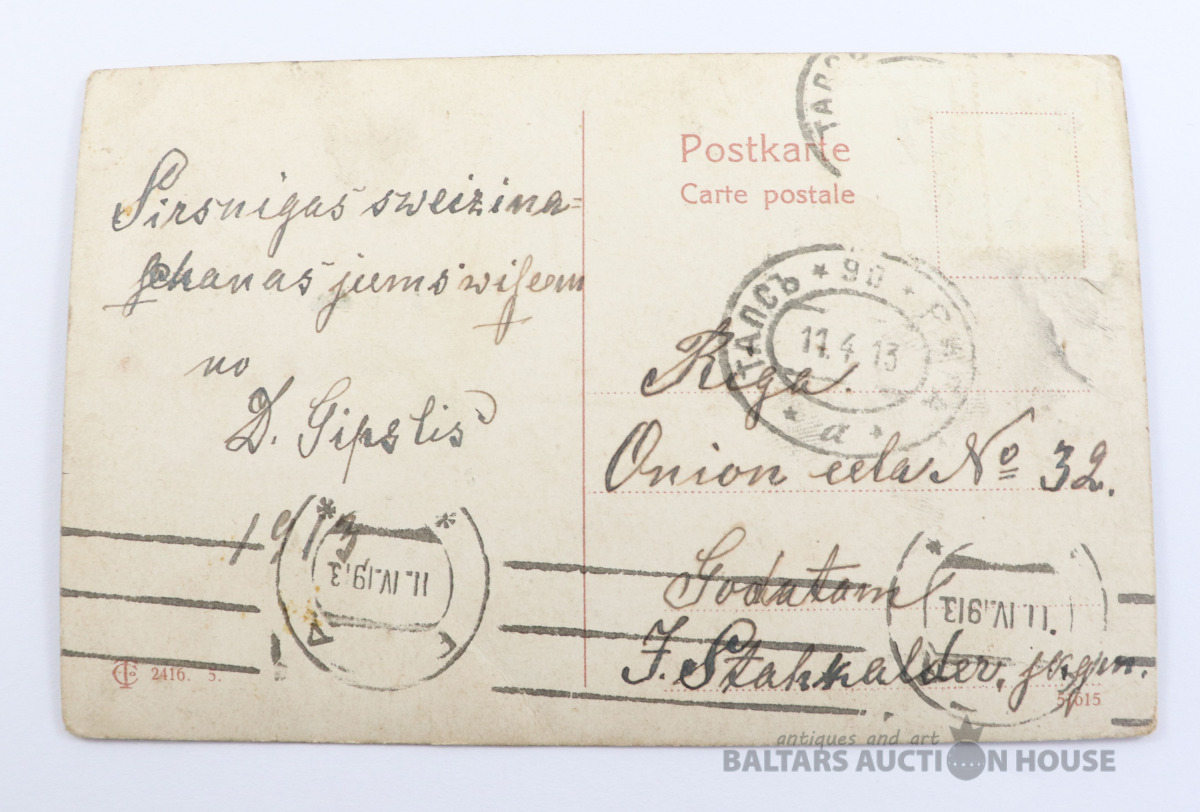 Sirsnigas sweizina=
schanas jums wisem
no
D. Gipslis
1913
2416. 5.
Postkarte
Carte postale
ТАЛСЪ * 90 * РИГА
11.4.13
* a *
Riga.
Onion eela № 32.
Godatam
J. Stahkalder, jkgm.
11.IV.1913
11.IV.1913
51615
antiques and art
BALTARS AUCTION HOUSE